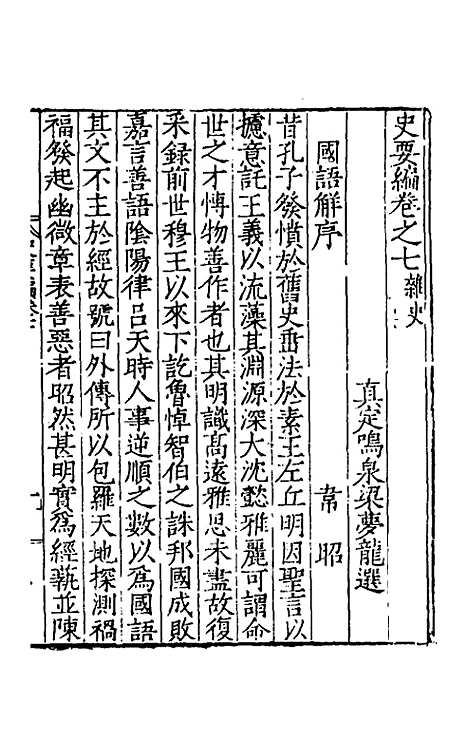 史要編卷之七 雜史
真定鳴泉梁夢龍選
國語解序 韋昭
昔孔子發憤於舊史垂法於素王左丘明因聖言以
攄意託王義以流藻其淵源深大沈懿雅麗可謂命
世之才博物善作者也其明識高遠雅思未盡故復
采録前世穆王以來下訖魯悼智伯之誅邦國成敗
嘉言善語陰陽律呂天時人事逆順之數以為國語
其文不主於經故號曰外傳所以包羅天地探測禍
福發起幽微章表善惡者昭然甚明實為經蓺並陳